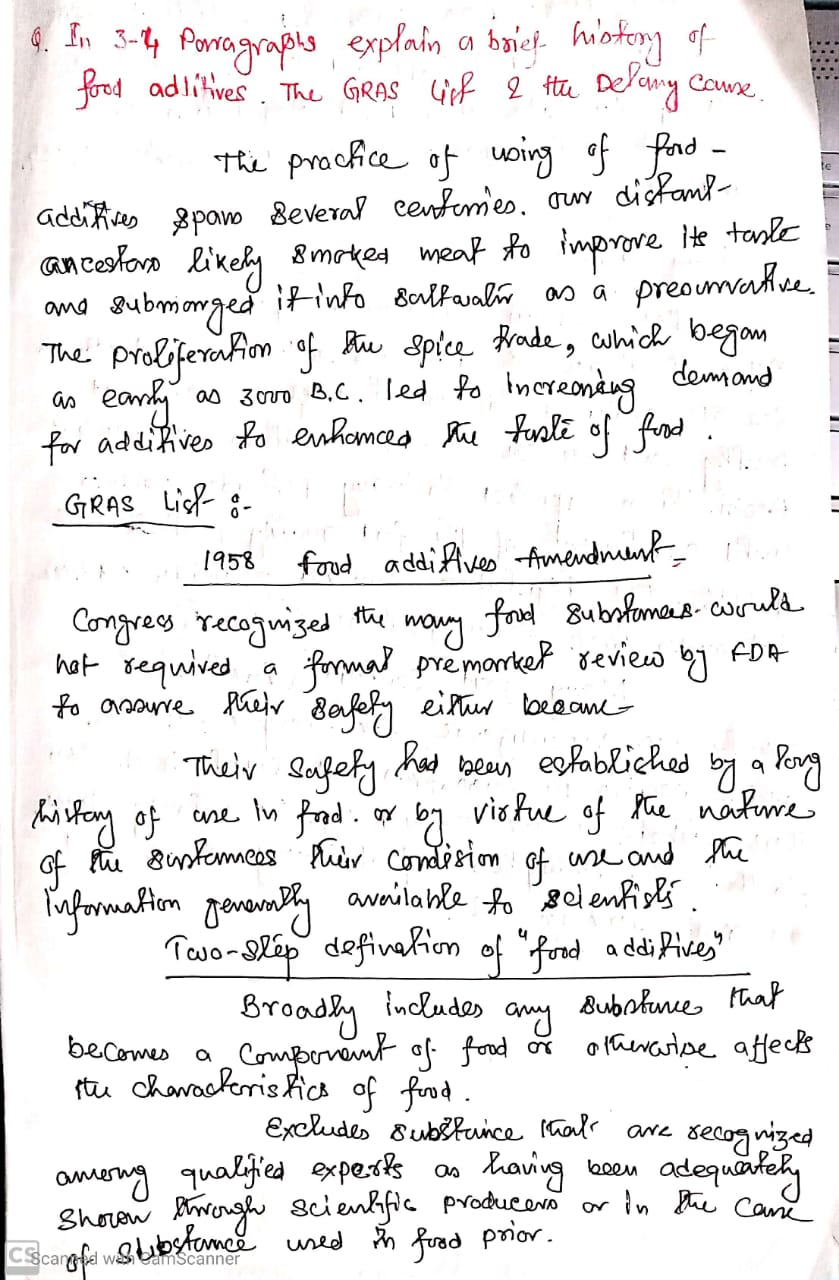 Q. In 3-4 Parragraphs explain a brief history of
food additives. The GRAS list & the Delany Cause.
The practice of using of food -
additives spans several centuries. our distant-
ancestors likely smoked meat to improve its taste
and submorged it into saltwater as a preservative.
The proliferation of the spice trade, which began
as early as 3000 B.C. led to increasing demand
for additives to enhanced the taste of food.
GRAS List :-
1958 food additives Amendment -
Congress recognized the many food substances would
not required a formal premarket review by FDA
to assure their safety either because
Their safety had been established by a long
history of use in food. or by virtue of the nature
of the substances their condision of use and the
information generally available to scientists.
Two-step defination of "food additives"
Broadly includes any substance that
becomes a component of food or otherwise affects
the characterristics of food.
Excludes substance that are recognized
among qualified experts as having been adequately
shown through scientific producers or in the case
of substance used in food prior.
CS Scanned with CamScanner